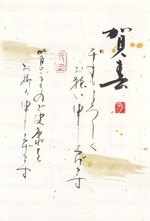 賀春
本年もよろしく
お願い申し上げます
皆さまのご健康を
お祈り申し上げます